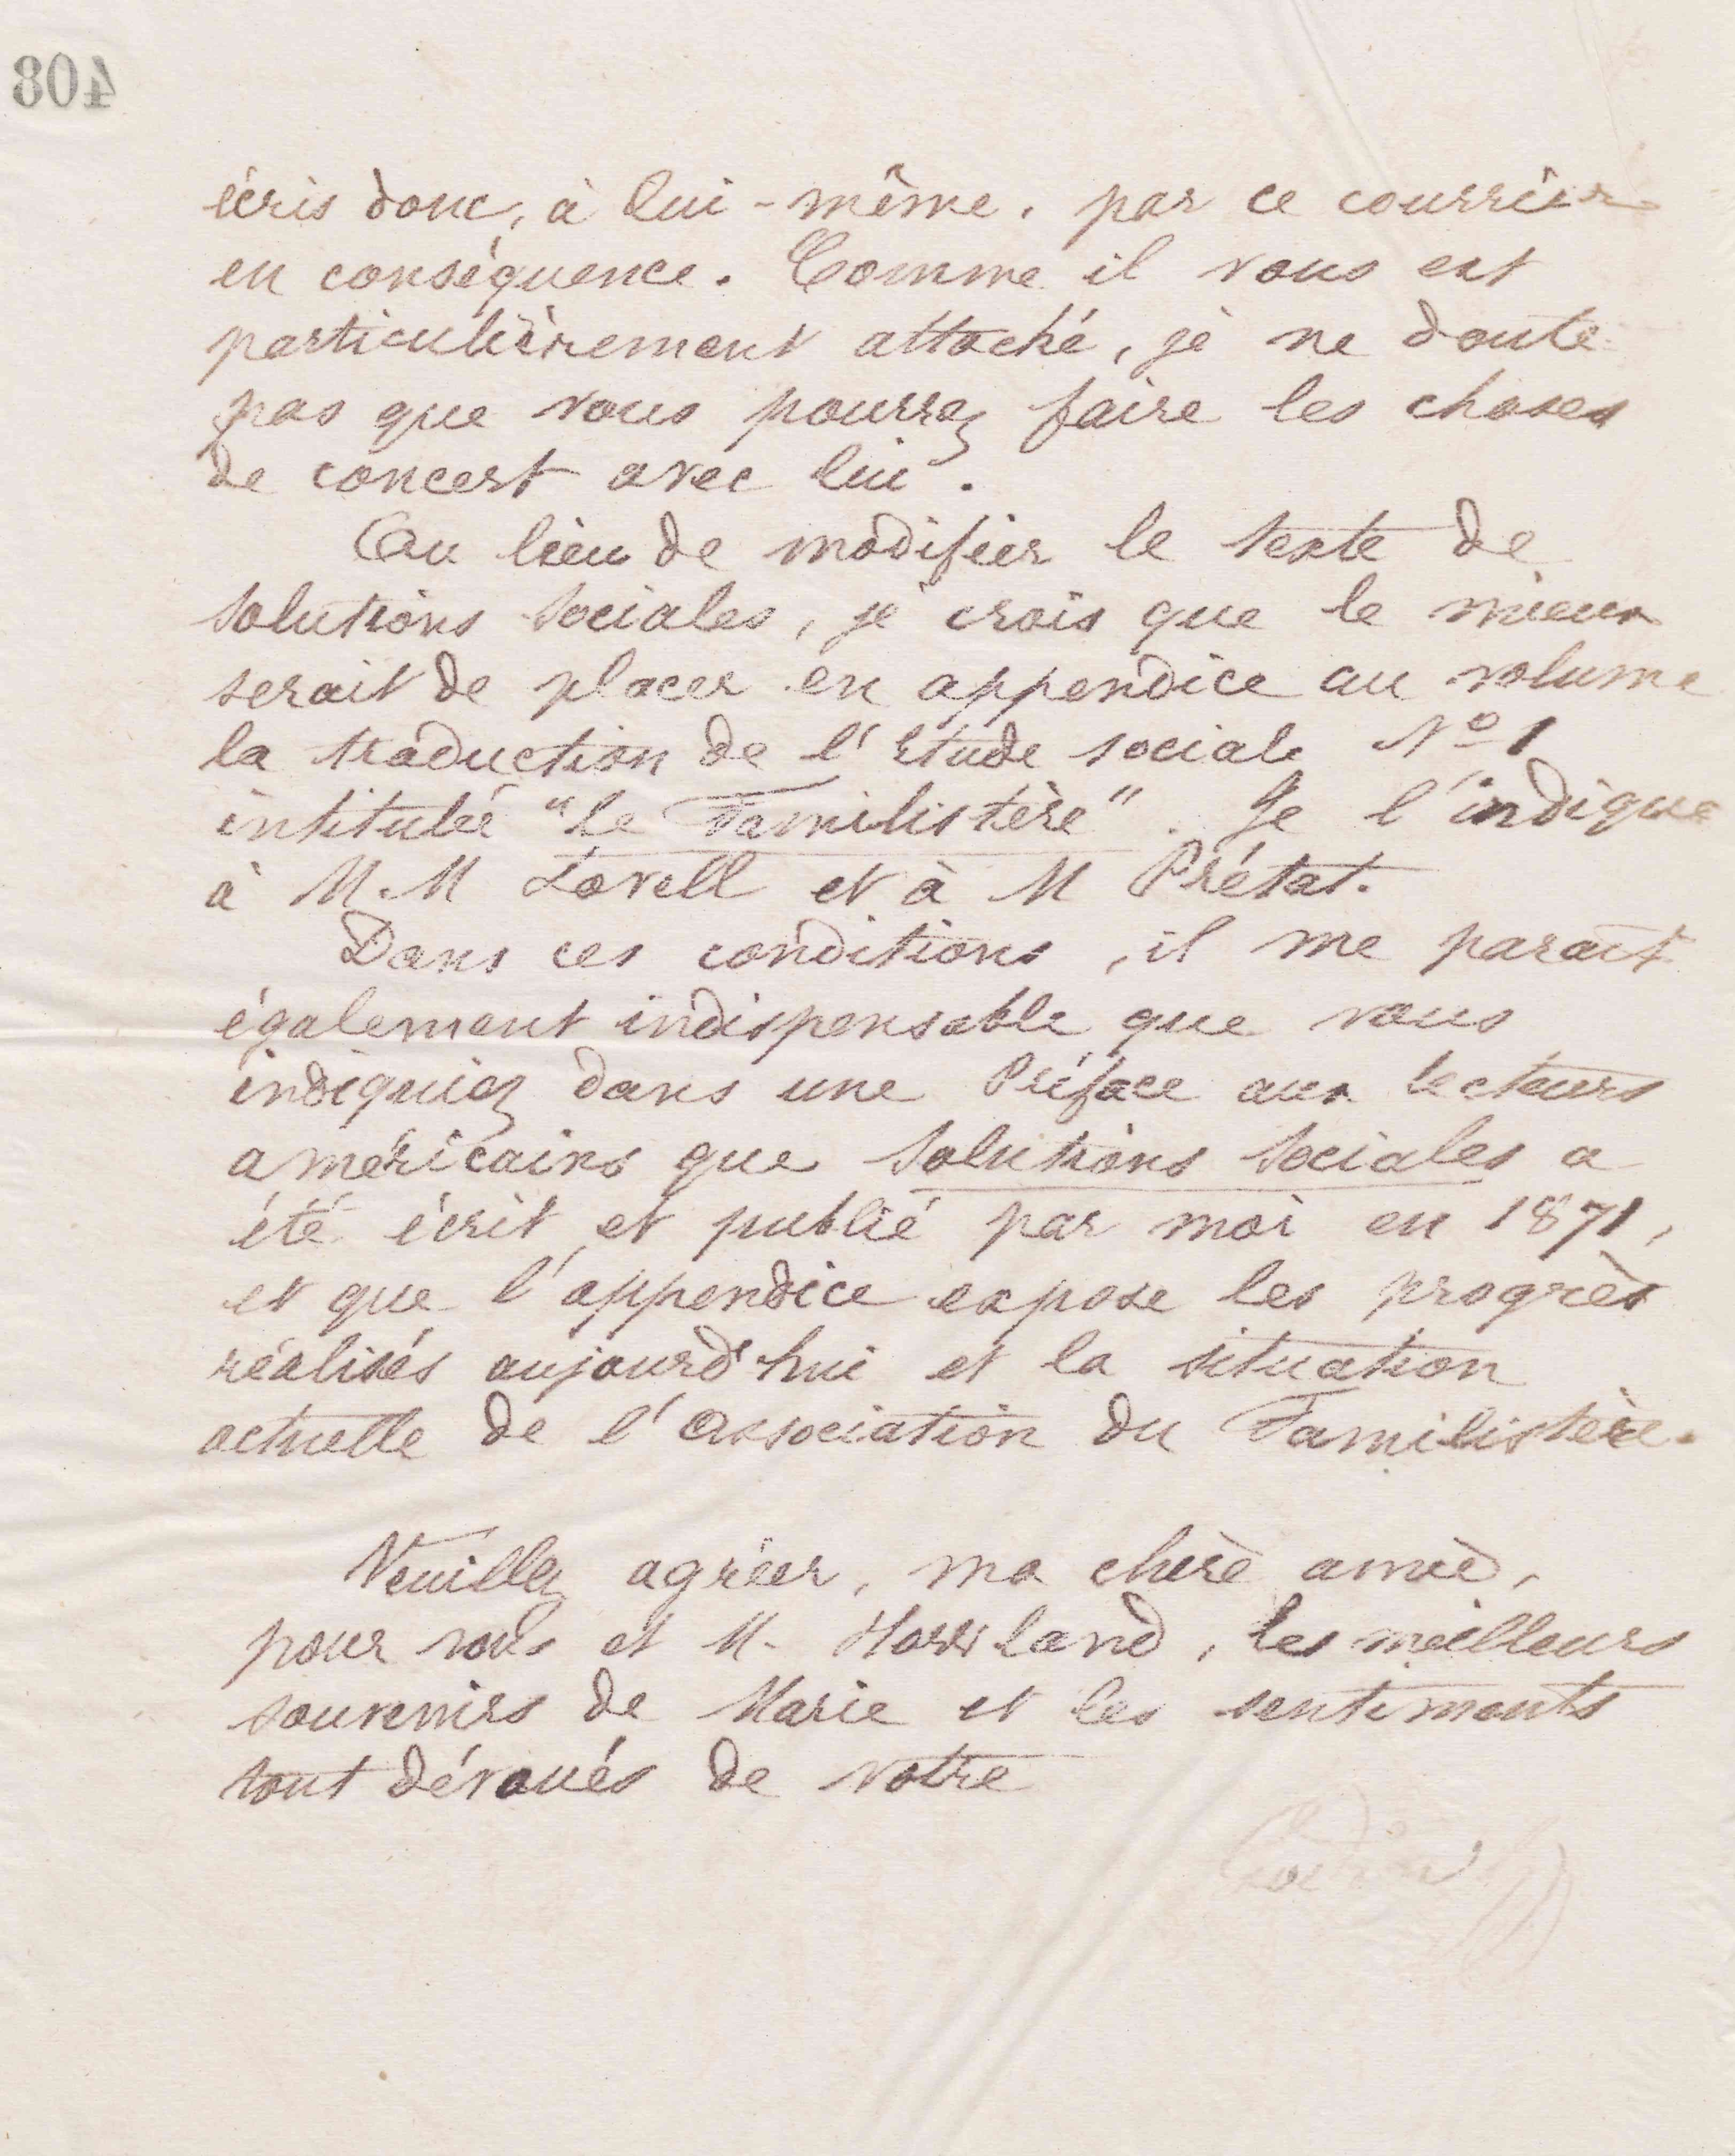 408
écris donc, à lui-même, par ce courrier
en conséquence. Comme il vous est
particulièrement attaché, je ne doute
pas que vous pourrez faire les choses
de concert avec lui.
Au lieu de modifier le texte de
solutions sociales, je crois que le mieux
serait de placer en appendice au volume
la traduction de l'étude sociale No 1
intitulée "Le Familistère". Je l'indique
à M.M Lovell et à M Prétat.
Dans ces conditions, il me parait
également indispensable que vous
indiquiez dans une Préface aux lecteurs
américains que Solutions Sociales a
été écrit et publié par moi en 1871,
et que l'appendice expose les progrès
réalisés aujourd'hui et la situation
actuelle de l'Association du Familistère.
Veuillez agréer, ma chère amie,
pour vous et M. Howland, les meilleurs
souvenirs de Marie et les sentiments
tout dévoués de votre
Godin